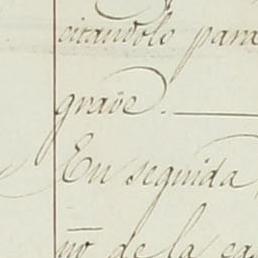 citandolo para
grave.
En seguida
no de la ca